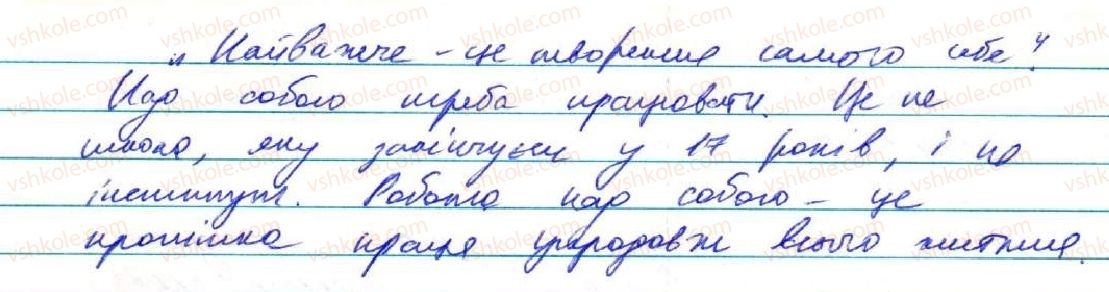 „Найважче – це творення самого себе."
Над собою треба працювати. Це не
школа, яку закінчуєш у 17 років, і не
інститут. Робота над собою – це
кропітка праця упродовж всього життя.